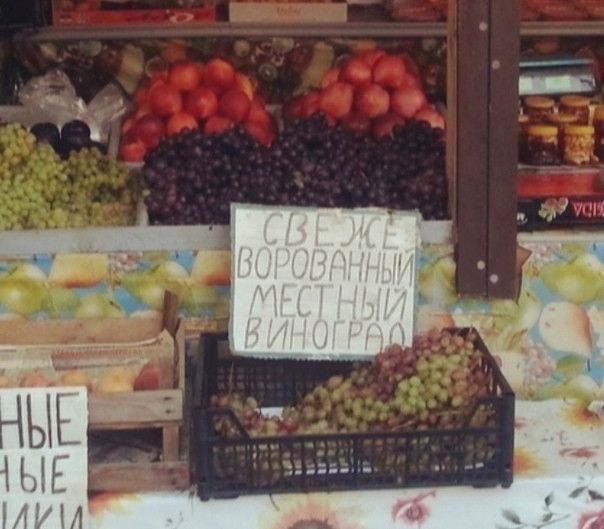 СВЕЖЕ
ВОРОВАННЫЙ
МЕСТНЫЙ
ВИНОГРАД
НЫЕ
НЫЕ
ИКИ